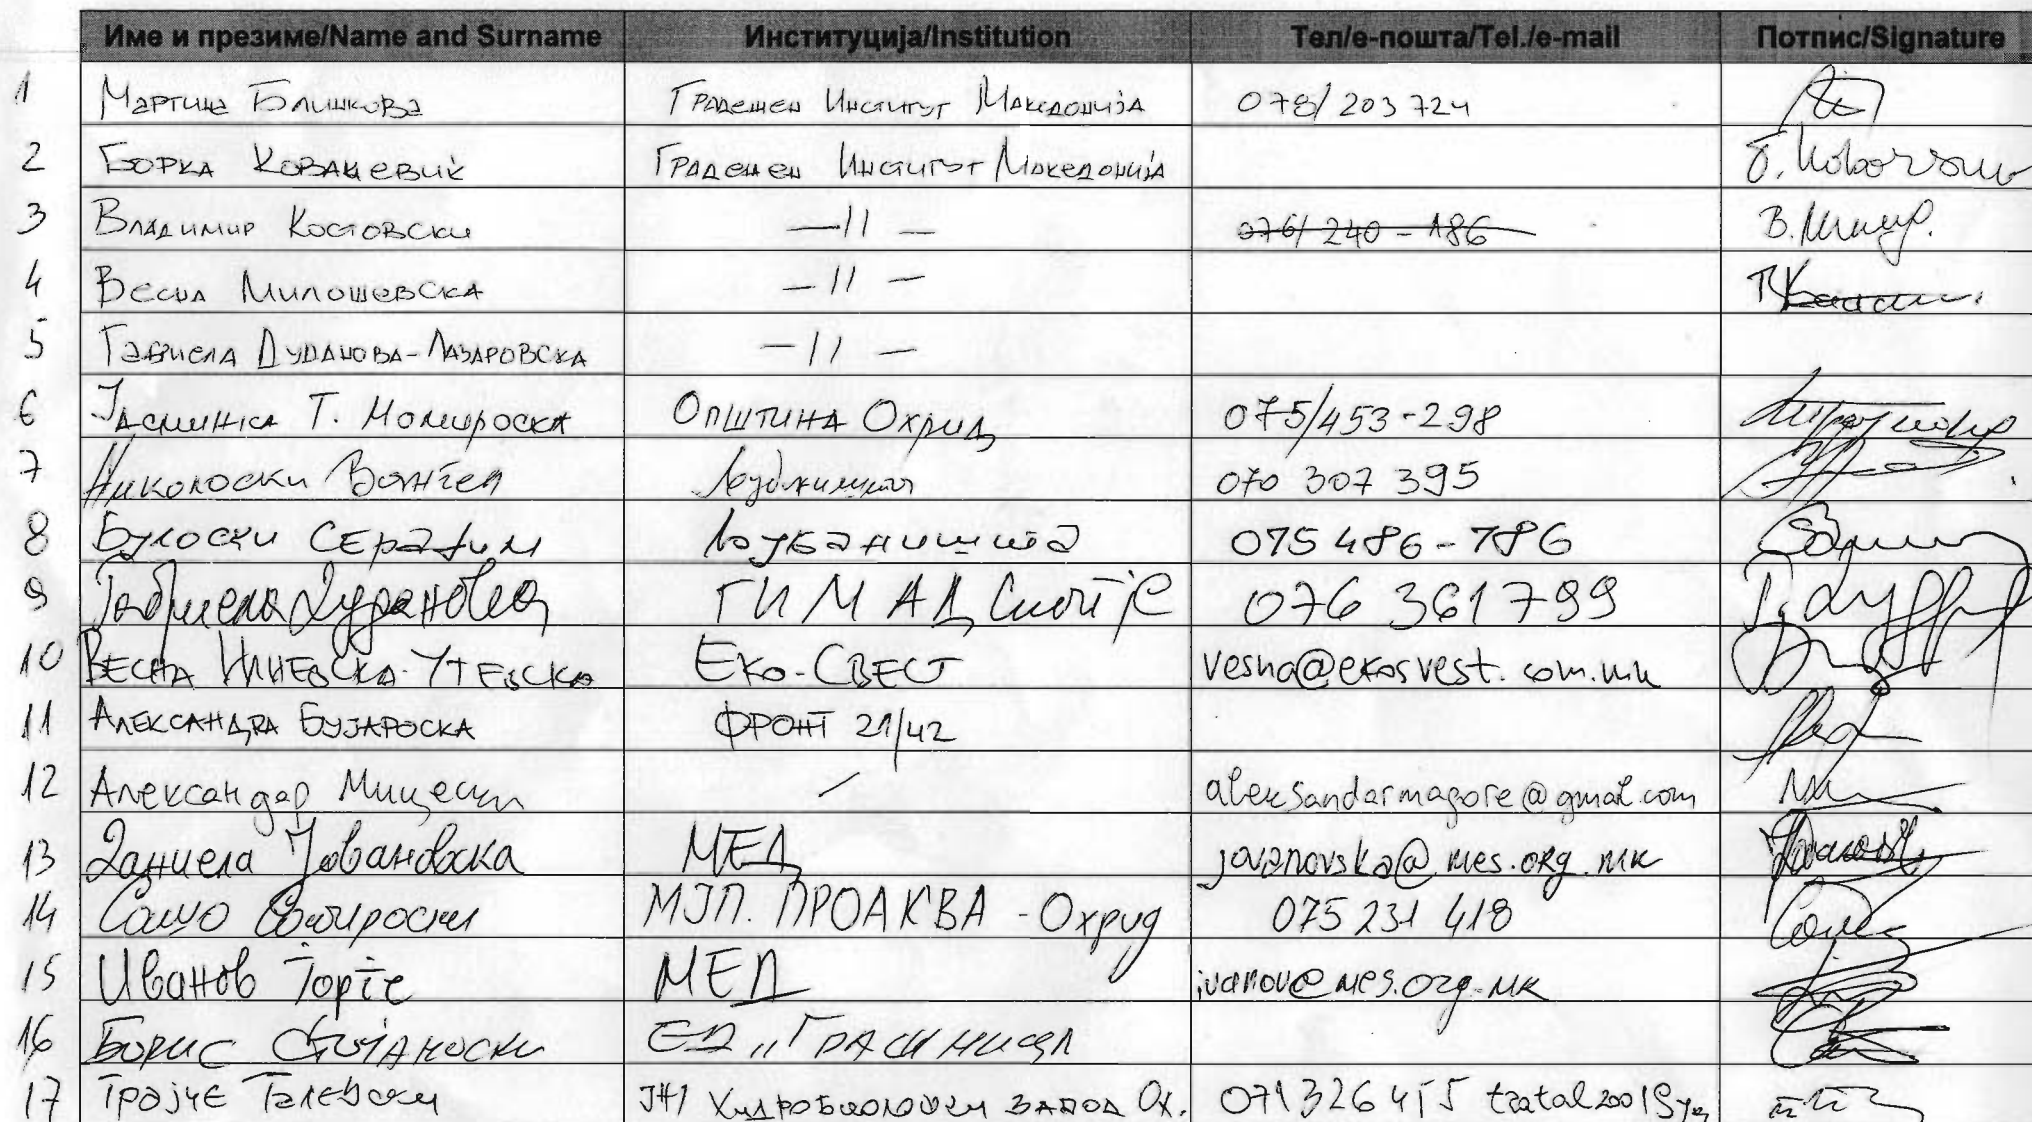 Име и презиме/Name and Surname Институција/Institution Тел/е-пошта/Tel./e-mail Потпис/Signature
1 Мартина Блинкова Градежен Институт Македонија 078/203 724
2 Борка Ковачевиќ Градежен Институт Македонија
3 Владимир Костовски —//— 076/240-186
4 Весна Милошевска —//—
5 Габриела Дуданова-Лазаровска —//—
6 Јасминка Т. Момироска Општина Охрид 075/453-298
7 Николоски Ванѓел 070 307 395
8 Серафим Љубаништа 075 486-786
9 Габриела ГИМ АД Скопје 076 361799
10 Весна Еко-Свест vesna@ekosvest.com.mk
11 Александра Бујароска ФРОНТ 21/42
12 Александар Мицески / aleksandarmagore@gmail.com
13 Даниела Јовановска МЕД jovanovska@mes.org.mk
14 Сашо МЈП. ПРОАКВА - Охрид 075 231 418
15 Иванов Ѓорѓе МЕД ivanov@mes.org.mk
16 Борис Стојаноски ЕД
17 Трајче Талевски ЈНУ Хидробиолошки завод Ох. 071 326 415